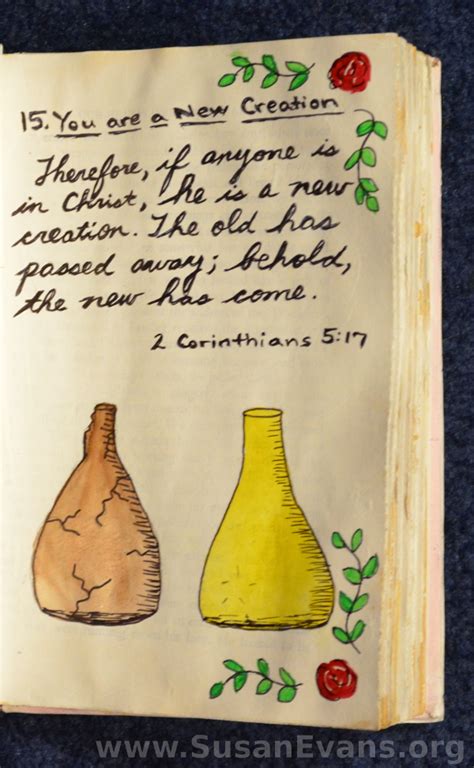 15. You are a New Creation
Therefore, if anyone is
in Christ, he is a new
creation. The old has
passed away; behold,
the new has come.
2 Corinthians 5:17
www.SusanEvans.org